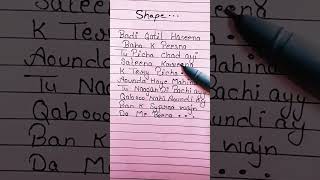 Shape...
Badi Qatil Haseena
Baba K Peesna
Tu Picha Chad ayi
Sateena Kaureena
K Tery Picha
Aounda Haye Mahina
Tu Naagan Di Bachi ayy
Qaboo Nahi Aoundi ay
Ban K Sypara wajn
Da Me Beena...